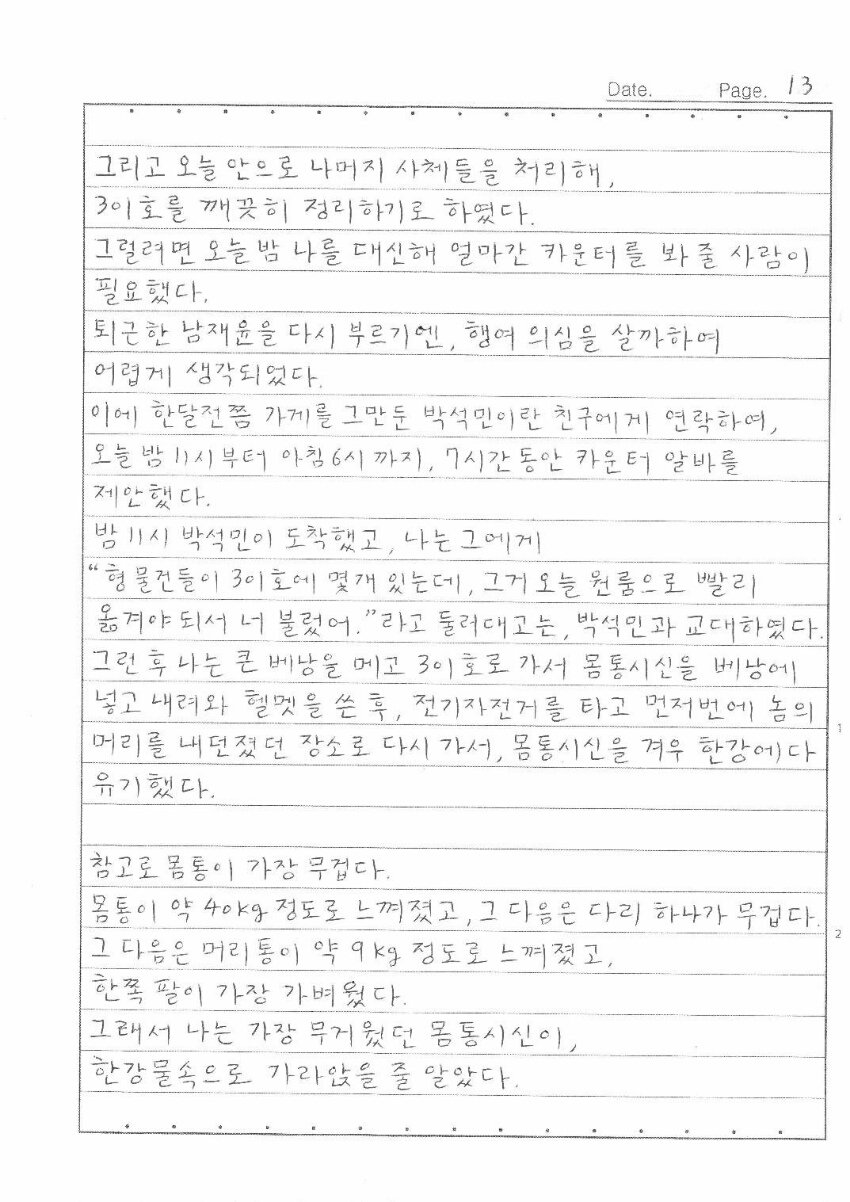 Date. Page. 13
그리고 오늘 안으로 나머지 사체들을 처리해,
301호를 깨끗히 정리하기로 하였다.
그럴려면 오늘 밤 나를 대신해 얼마간 카운터를 봐 줄 사람이
필요했다.
퇴근한 남재윤을 다시 부르기엔, 행여 의심을 살까하여
어렵게 생각되었다.
이에 한달전쯤 가게를 그만둔 박석민이란 친구에게 연락하여,
오늘 밤 11시부터 아침 6시 까지, 7시간 동안 카운터 알바를
제안했다.
밤 11시 박석민이 도착했고, 나는 그에게
"형 물건들이 301호에 몇개 있는데, 그거 오늘 원룸으로 빨리
옮겨야 되서 너 불렀어."라고 둘러대고는, 박석민과 교대하였다.
그런 후 나는 큰 베낭을 메고 301호로 가서 몸통시신을 베낭에
넣고 내려와 헬멧을 쓴 후, 전기자전거를 타고 먼저번에 놈의
머리를 내던졌던 장소로 다시 가서, 몸통시신을 겨우 한강에다
유기했다.
참고로 몸통이 가장 무겁다.
몸통이 약 40kg 정도로 느껴졌고, 그 다음은 다리 하나가 무겁다.
그 다음은 머리통이 약 9kg 정도로 느껴졌고,
한쪽 팔이 가장 가벼웠다.
그래서 나는 가장 무거웠던 몸통시신이,
한강물속으로 가라앉을 줄 알았다.
1
2